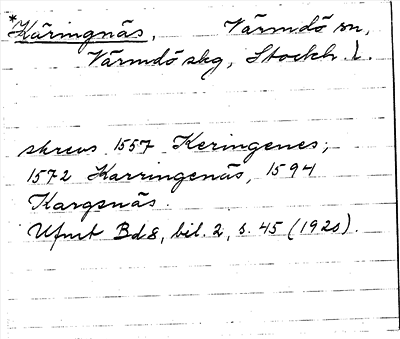 *Käringnäs, Värmdö sn,
Värmdö skg, Stockh. l.
skrevs 1557 Keringenes,
1572 Karringenäs, 1594
Kargsnäs.
Ufmt Bd 8, bil. 2, s. 45 (1920).